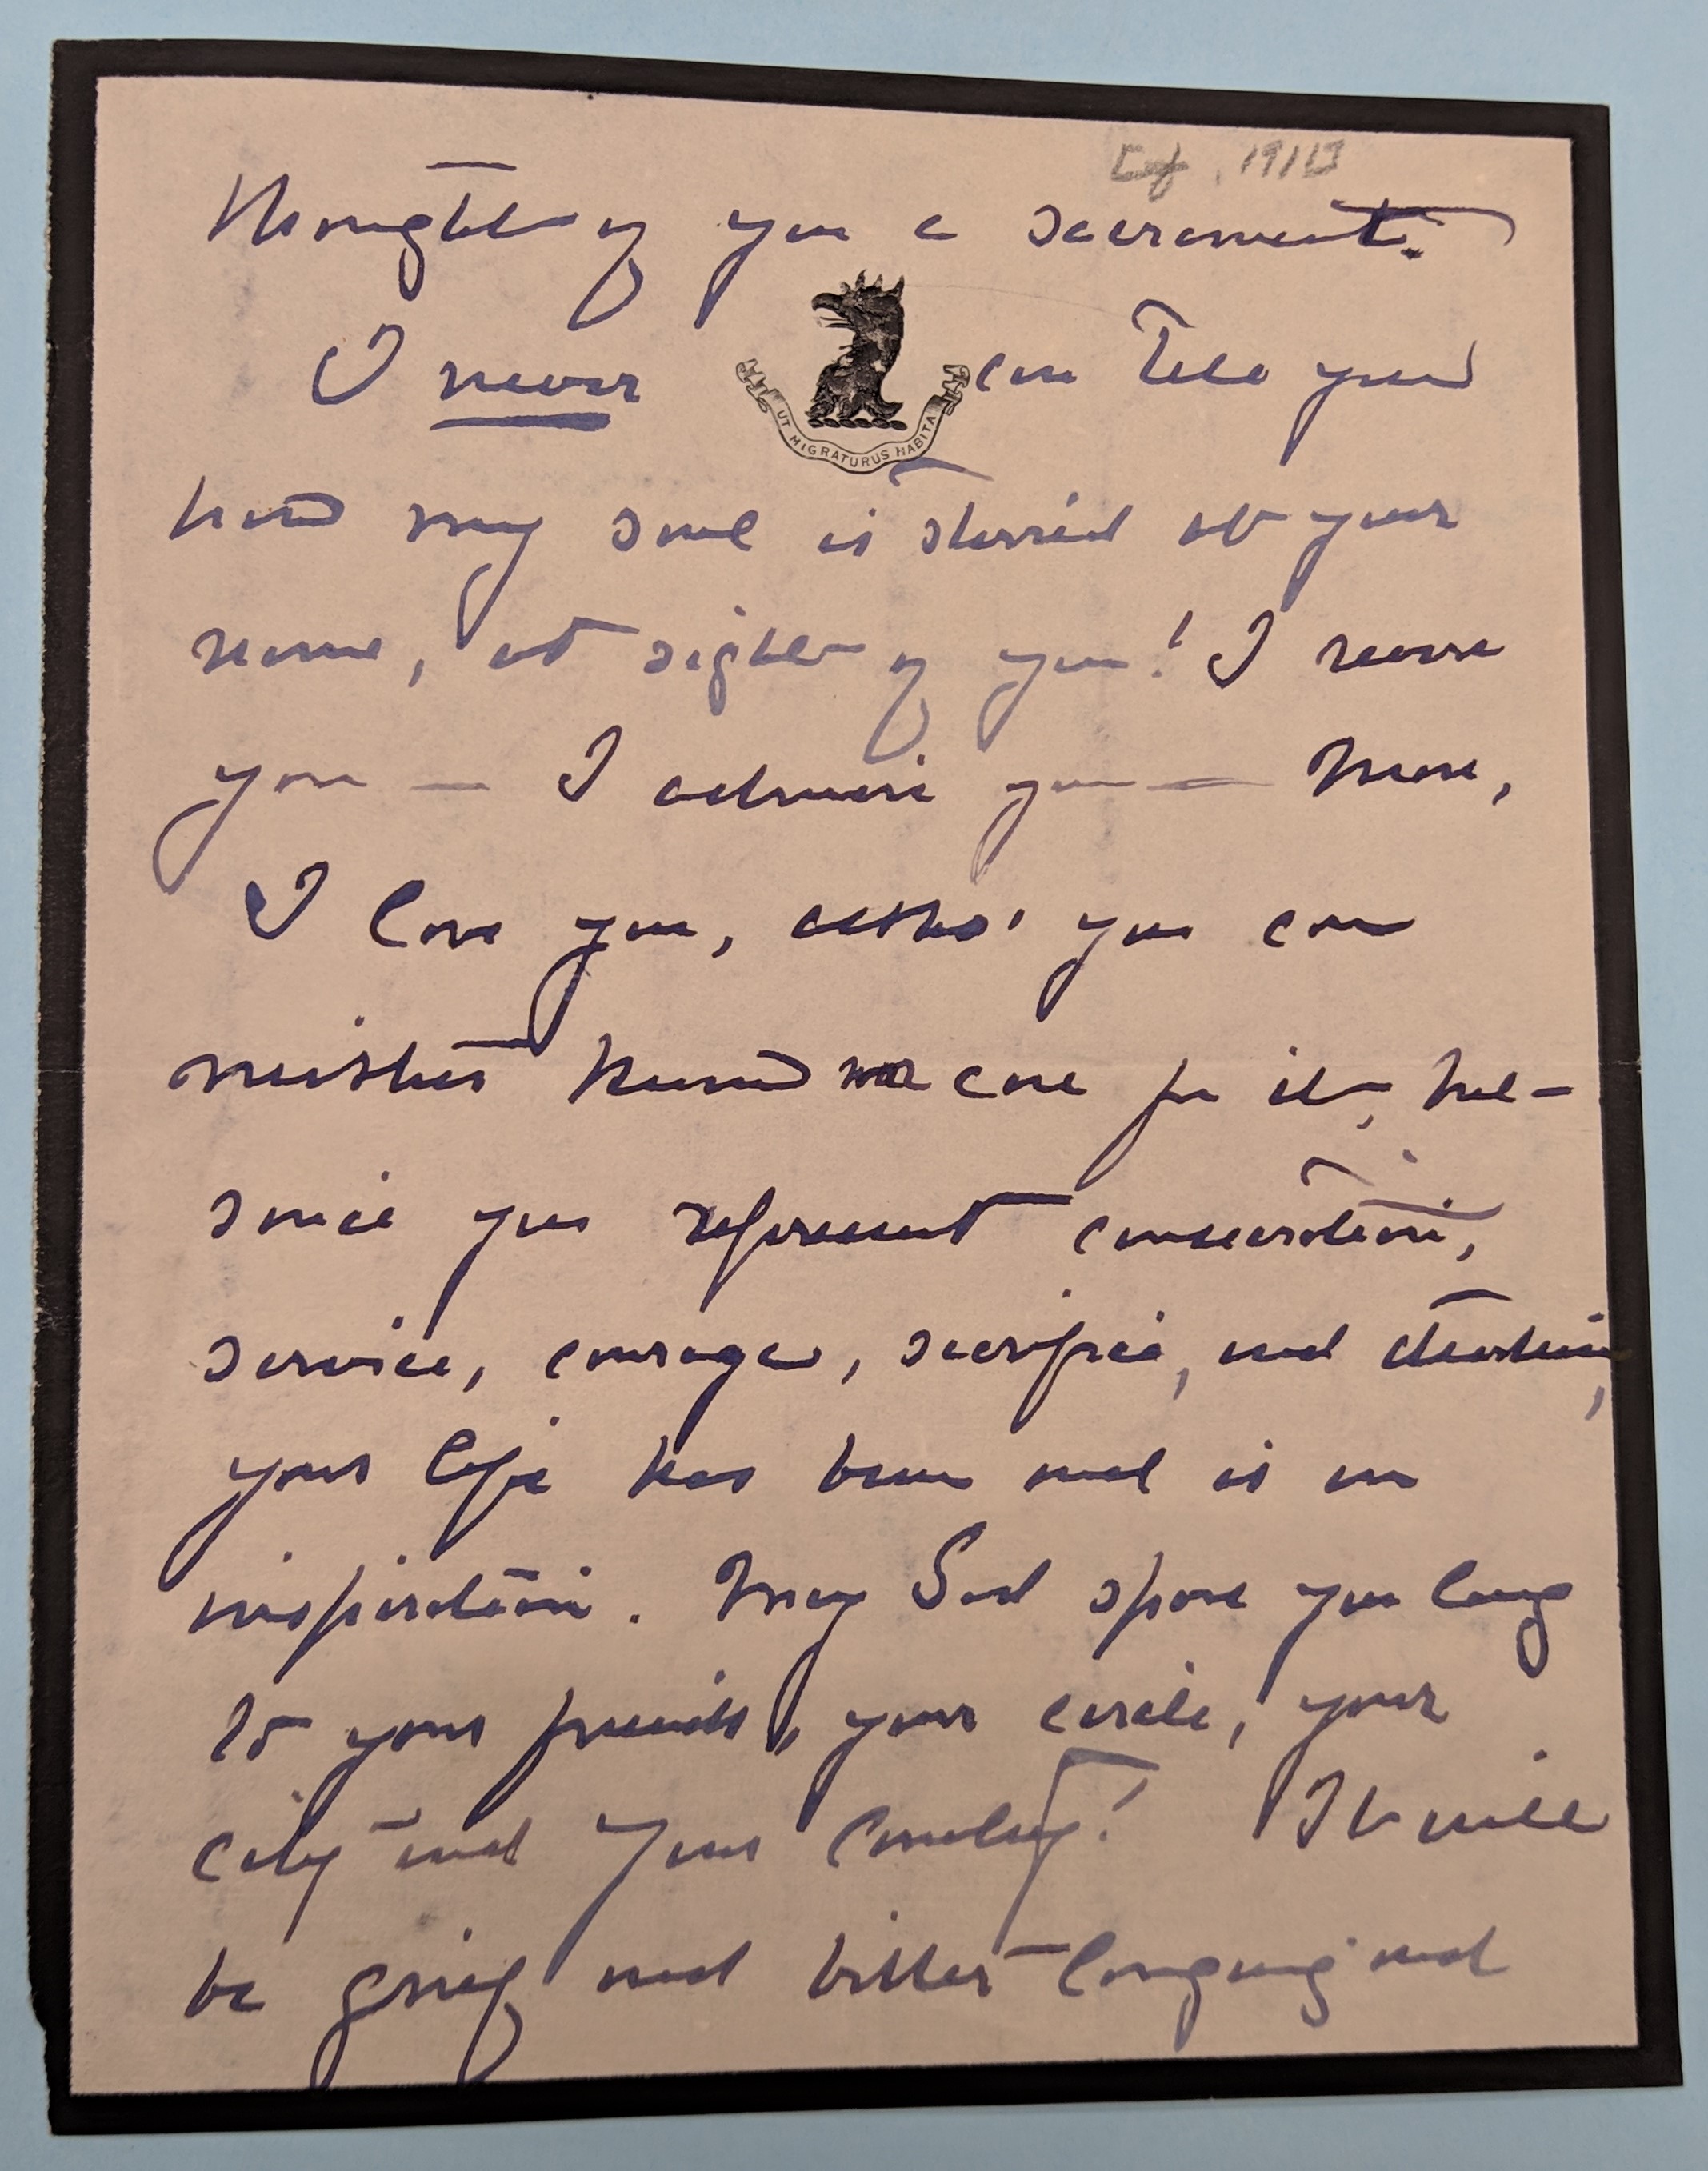 thought of you a sacrament.
I never can tell you
UT MIGRATURUS HABITA
how my soul is stirred at your
name, at sight of you! I revere
you — I admire you — More,
I love you, altho' you can
neither know nor care for it, but -
since you represent consecration,
service, courage, sacrifice, and devotion,
your life has been and is an
inspiration. May God spare you long
to your friends, your circle, your
city and your country! It will
be grief and bitter longing and